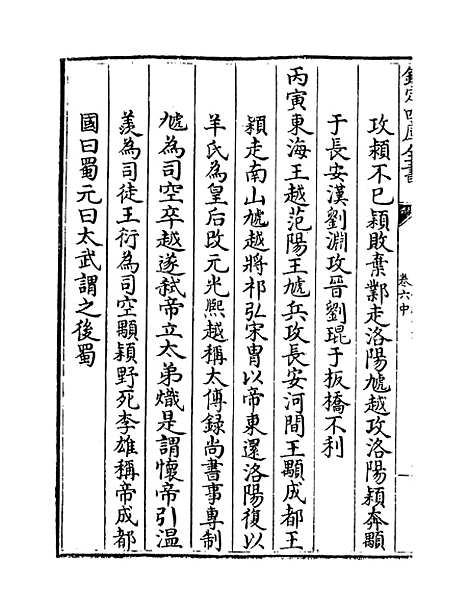 欽定四庫全書
卷六中
攻穎不已穎敗棄鄴走洛陽虓越攻洛陽穎奔顒
于長安漢劉淵攻晉劉琨于板橋不利
丙寅東海王越范陽王虓兵攻長安河間王顒成都王
穎走南山虓越將祁弘宋胄以帝東還洛陽復以
羊氏為皇后改元光熙越稱太傅録尚書事專制
虓為司空卒越遂弑帝立太弟熾是謂懷帝引温
羨為司徒王衍為司空顒穎野死李雄稱帝成都
國曰蜀元曰太武謂之後蜀